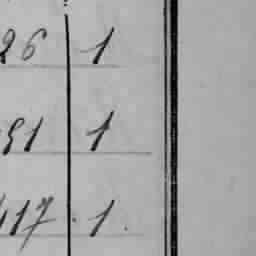 26 1
91 1
417 . 1 .